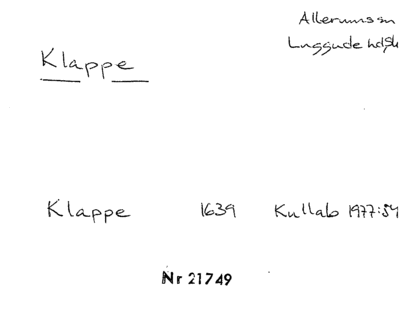 Allerums sn
Luggude hd Sk
Klappe
Klappe 1639 Kullab 1977:54
Nr 21749